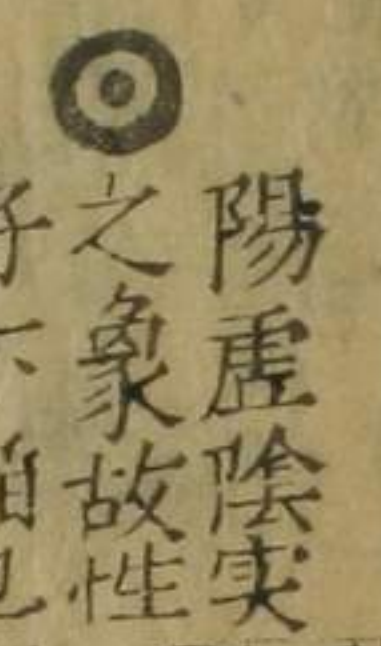 陽虚陰実
之象故性